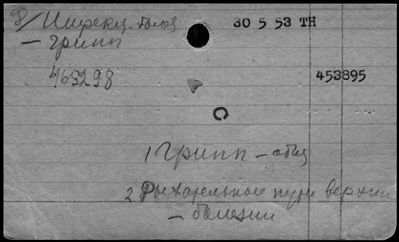 8/ Инфекц. болез 30 5 53 TH
— грипп
463298 453895
1 Грипп — общ
2 Дыхательные пути верхние
— болезни